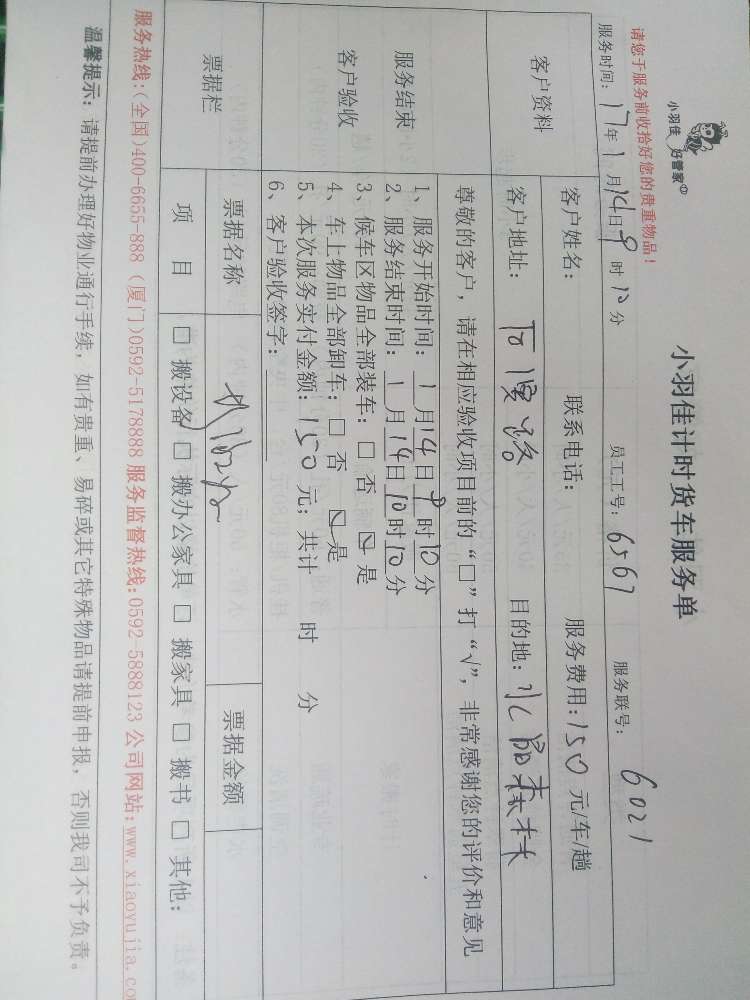 小羽佳 好管家
小羽佳计时货车服务单
请您于服务前收拾好您的贵重物品！
服务时间：17年1月14日9时10分 员工工号：6567 服务联号：6021
客户资料 客户姓名： 联系电话： 服务费用：150元/车/趟
客户地址： 目的地：
尊敬的客户，请在相应验收项目前的“□”打“√”，非常感谢您的评价和意见
服务结束
客户验收
1、服务开始时间：1月14日9时10分
2、服务结束时间：1月14日10时10分
3、候车区物品全部装车：□ 否 ☑ 是
4、车上物品全部卸车：□ 否 ☑ 是
5、本次服务实付金额：150元；共计 时 分
6、客户验收签字：
票据栏 票据名称 票据金额
项 目 □ 搬设备 □ 搬办公家具 □ 搬家具 □ 搬书 □ 其他：
服务热线：(全国)400-6655-888 (厦门)0592-5178888 服务监督热线：0592-5888123 公司网站：www.xiaoyujia.co
温馨提示：请提前办理好物业通行手续，如有贵重、易碎或其它特殊物品请提前申报，否则我司不予负责。